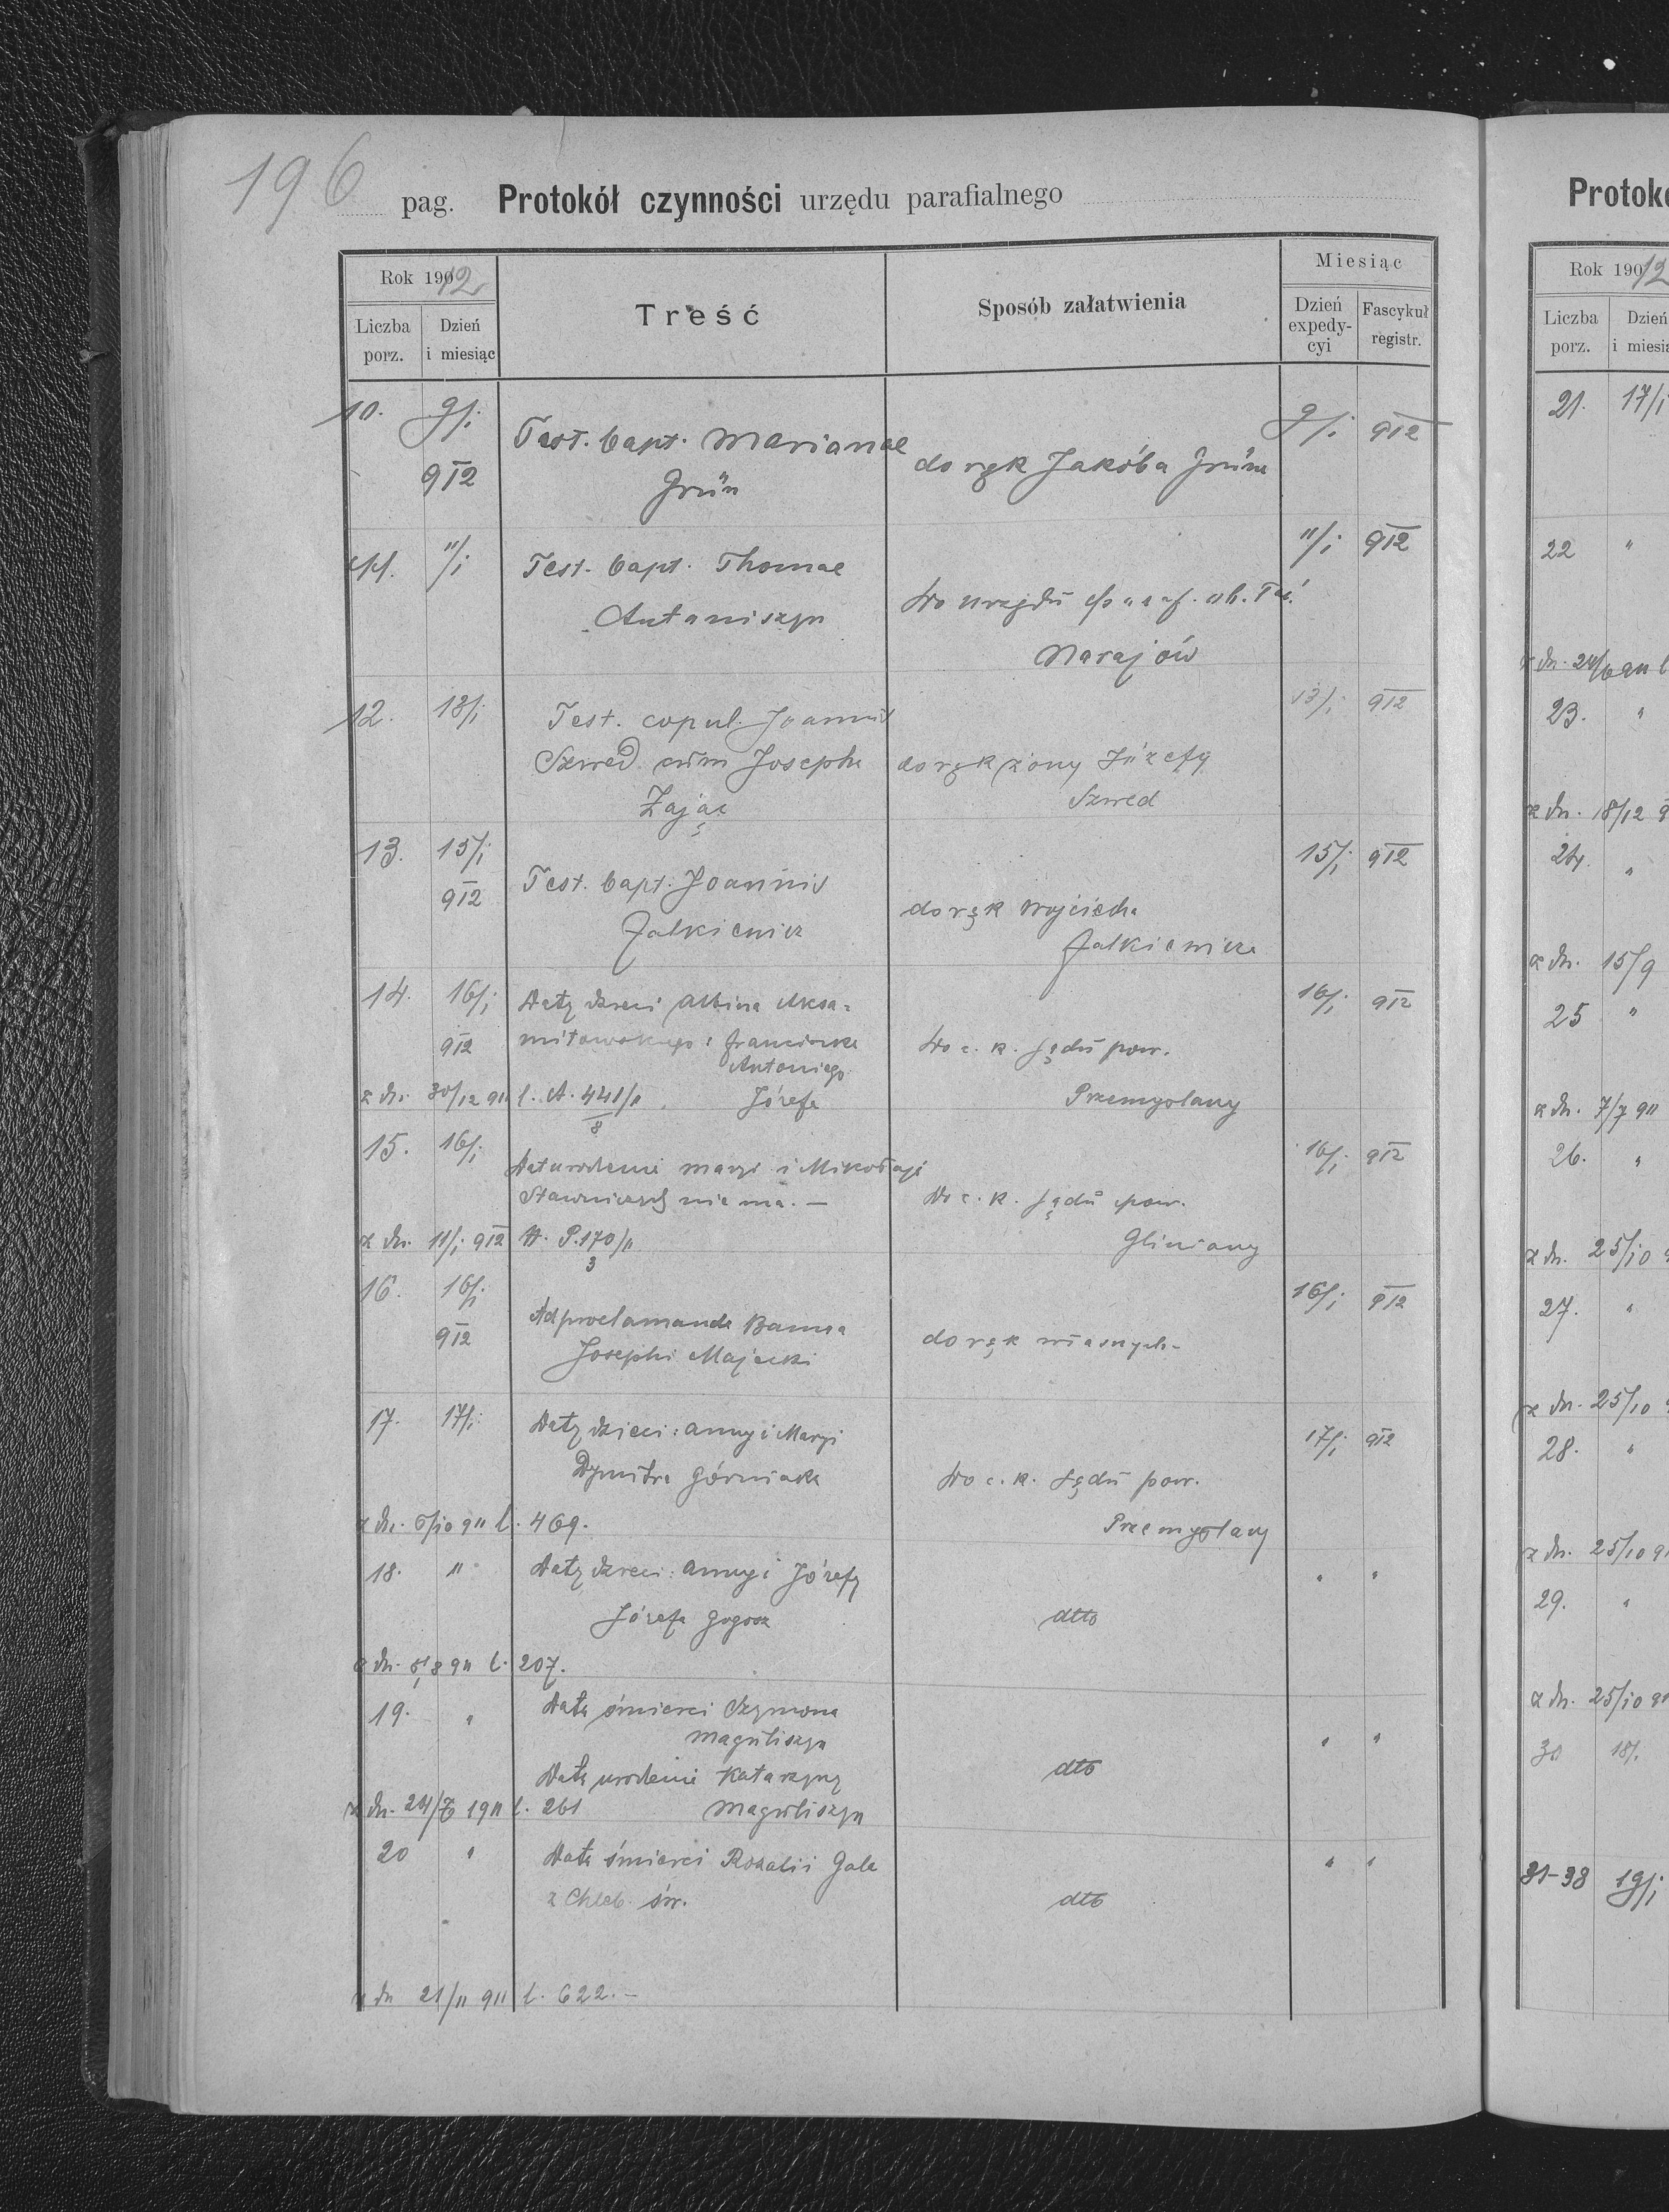 196 pag. Protokół czynności urzędu parafialnego
Rok 1912
Treść
Sposób załatwienia
Miesiąc
Liczba porz.
Dzień i miesiąc
Dzień expedycyi
Fascykuł registr.
10. 9/I Test. bapt. Marianae 9/I 912
912 Grün do rąk Jakóba Grüna
11. 11/I Test. bapt. Thomae 11/I 912
Antaniszyn Do urzędu paraf. ob. łać.
Narajów
12. 13/I Test. copul. Joannis 13/I 912
Szwed cum Josepha do rąk żony Józefy
Zając Szwed
13. 15/I Test. bapt. Joannis 15/I 912
912 Falkiewicz do rąk Wojciecha
Falkiewicza
14. 16/I Daty dzieci Albina Aksa= 16/I 912
912 mitowskiego: Franciszka Do c. k. Sądu pow.
Antoniego
z dn. 30/12 911 l. A. 441/11 Józefa Przemyślany
8
15. 16/I Dat urodzenia Maryi i Mikołaja 16/I 912
nie ma. — Do c. k. Sądu pow.
z dn. 11/I 912 P. 170/11 Gliniany
3
16. 16/I Ad proclamanda Banna 16/I 912
912 Josephi Majecki do rąk własnych-
17. 17/I Daty dzieci: Anny i Maryi 17/I 912
Dymitra Górniaka Do c. k. Sądu pow.
z dn. 6/10 911 l. 469. Przemyślany
18. " Daty dzieci: Anny i Józefy " "
Józefa dtto
z dn. 8 911 l. 207.
19. " Data śmierci Szymona " "
Maguliszyn
Data urodzenia Katarzyny dtto
z dn. 24/ 1911 l. 261 Maguliszyn
20 " Data śmierci Rozalii Gala " "
z Chleb. św. dtto
z dn 21/11 911 l. 622.—
Protok
Rok 1912
Liczba porz.
Dzień i miesią
21. 17/I
22 "
z dn. 24/6 911 l
23. "
z dn. 18/12 9
24. "
z dn. 15/9
25 "
z dn. 7/7 911
26. "
z dn. 25/10 9
27. "
z dn. 25/10 9
28. "
z dn. 25/10 91
29. "
z dn. 25/10 91
30 18/.
31-38 19/I